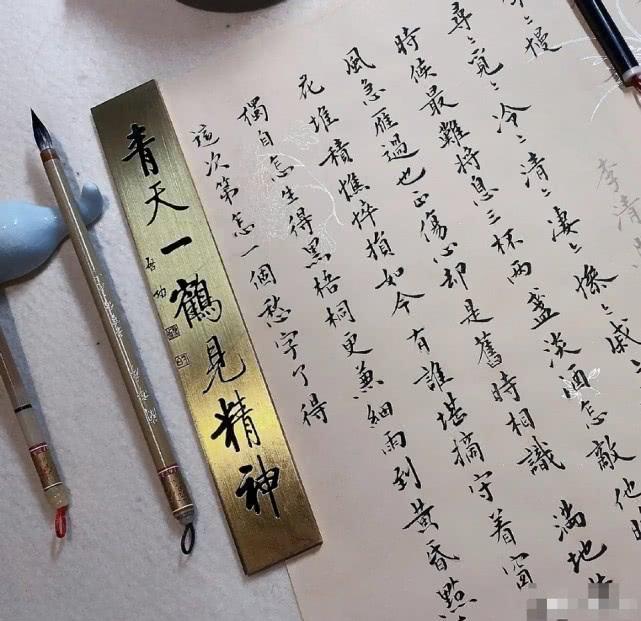 李清
〻慢
尋〻覓〻冷〻清〻淒〻慘〻戚〻
時候最難將息三杯兩盞淡酒怎敵他
風急雁過也正傷心却是舊時相識 滿地
花堆積憔悴損如今有誰堪摘守着窗
獨自怎生得黑梧桐更兼細雨到黃昏點
這次第怎一個愁字了得
青天一鶴見精神
啓功